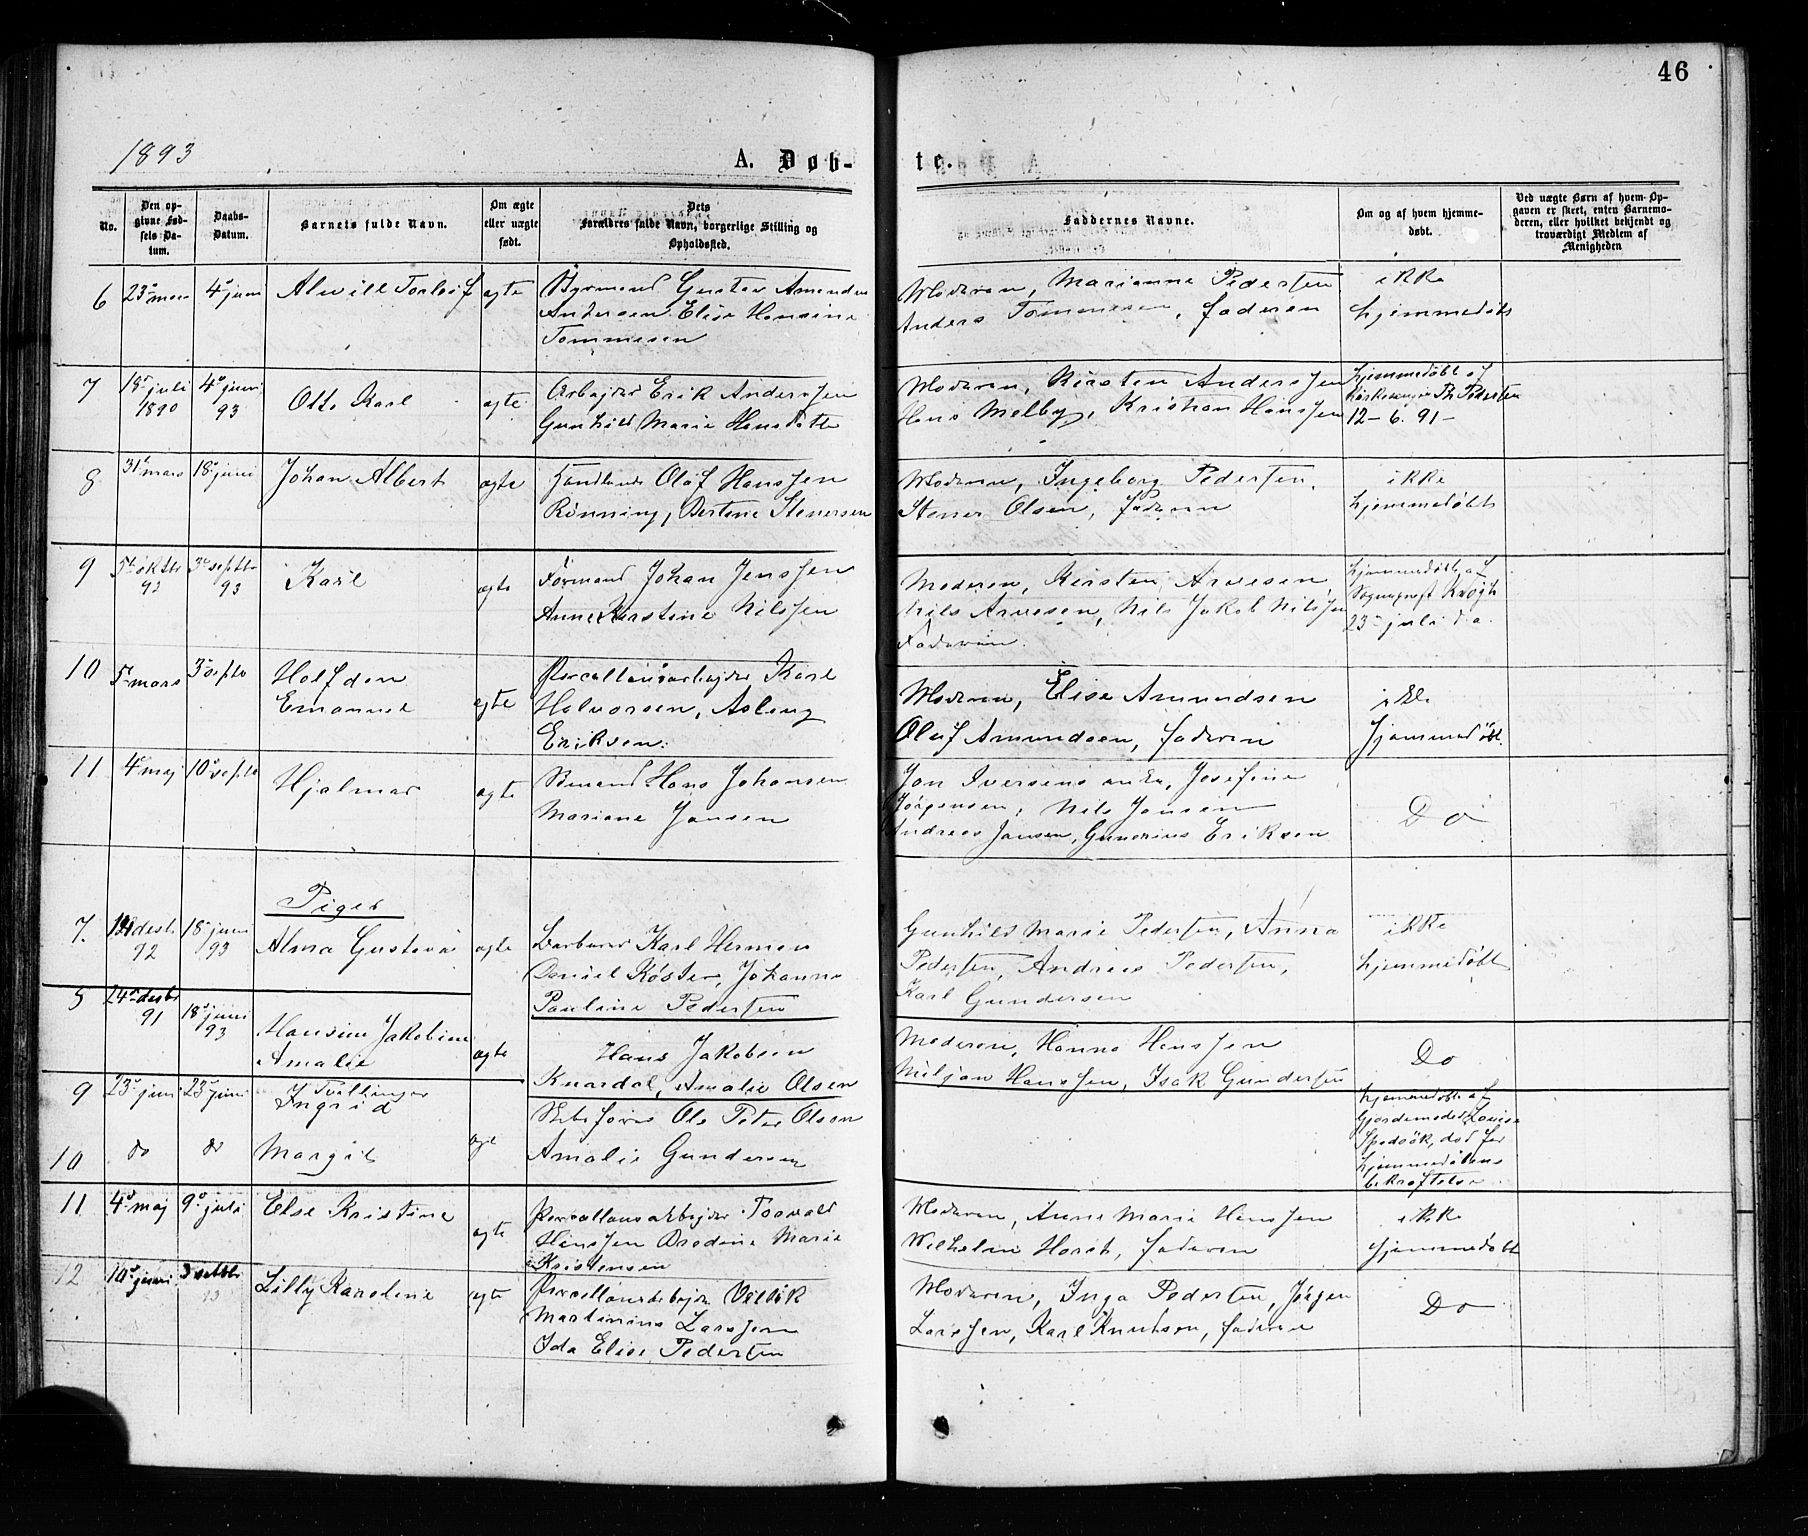 46
1893
A. Døb-
te.
No.
Den op-
givne Fød-
sels Da-
tum.
Daabs-
Datum.
Barnets fulde Navn.
Om ægte
eller uægte
født.
Dets
Forældres fulde Navn, borgerlige Stilling og
Opholdssted.
Faddernes Navne.
Om og af hvem hjemme-
døbt.
Ved uægte Børn af hvem Op-
gaven er skeet, enten Barnemo-
deren, eller hvilket bekjendt og
troværdigt Medlem af
Menigheden
6 23 mai 4 juni Alvill Torleif ægte Gustav Amandus
Andersen Elise Hansine
Tommesen
Moderen, Marianne Pedersen
Anders Tommesen, faderen
ikke
hjemmedøbt
7 18 juli
1890
4 juni
93
Otto Karl ægte Arbejder Erik Anderssen
Gunhild Marie Hansdatter
Moderen, Kirsten Anderssen
Hans Melby, Kristian Hanssen
hjemmedøbt af
Kirkesanger Th Pedersen
12-6.91-
8 31 mars 18 juni Johan Albert ægte Olaf Hanssen
Rønning, Bertine Stenersen
Moderen, Ingeborg Pedersen,
Stener Olsen, faderen
ikke
hjemmedøbt
9 5 oktbr
92
3 septbr
93
Karl ægte Formand Johan Jenssen
Anne Kirstine Nilssen
Moderen, Kirsten Arvesen
Nils Arvesen, Nils Jakob Nilssen
Faderen
hjemmedøbt af
Sogneprest Krogh
23 juli d.a.
10 5 mars 3 septb Halfdan
Emanuel
ægte Porcellansarbejder Karl
Halvorsen, Aslaug
Eriksen.
Moderen, Elise Amundsen
Oluf Amundsen, faderen
ikke
hjemmedøbt.
11 4 maj 10 septb Hjalmar ægte Hans Johansen
Mariane Jansen
Jan Iversens enke, Josefine
Jørgensen, Nils Jansen
Andreas Jansen, Gunerius Eriksen
Do
Piger
7. desb.
92
18 juni
93
Alma Gustava ægte Barberer Karl Herman
Daniel Køster, Johanne
Pauline Pedersen
Gunhild Marie Pedersen, Anna
Pedersen, Andreas Pedersen,
Karl Gundersen
ikke
hjemmedøbt
8 24 desbr
91
18 juni
93
Hansine Jakobine
Amalie
ægte Hans Jakobsen
Knardal, Amalie Olsen
Moderen, Hanna Hanssen
Hanssen, Isak Gundersen
Do
9 23 juni 23 juni Tvillinger
Ingrid
Skibsfører Ole Peter Olsen
10 do do Margit ægte Amalie Gundersen
hjemmedøbt af
Gjordemoder Lovise
død før
hjemmedøbens
bekræftelse
11 4 maj 9 juli Else Kristine ægte Porcellansarbejder Torvald
Hanssen Brodine Marie
Kristensen
Moderen, Anne Marie Hanssen
Vilhelm Horst, faderen
ikke
hjemmedøbt
12 10 juni 3 septbr
93
Lilly Karoline ægte Porcellansarbejder
Martinius Larssen
Ida Elise Pedersen
Moderen, Inga Pedersen, Jørgen
Larssen, Karl Knutsen, faderen
Do